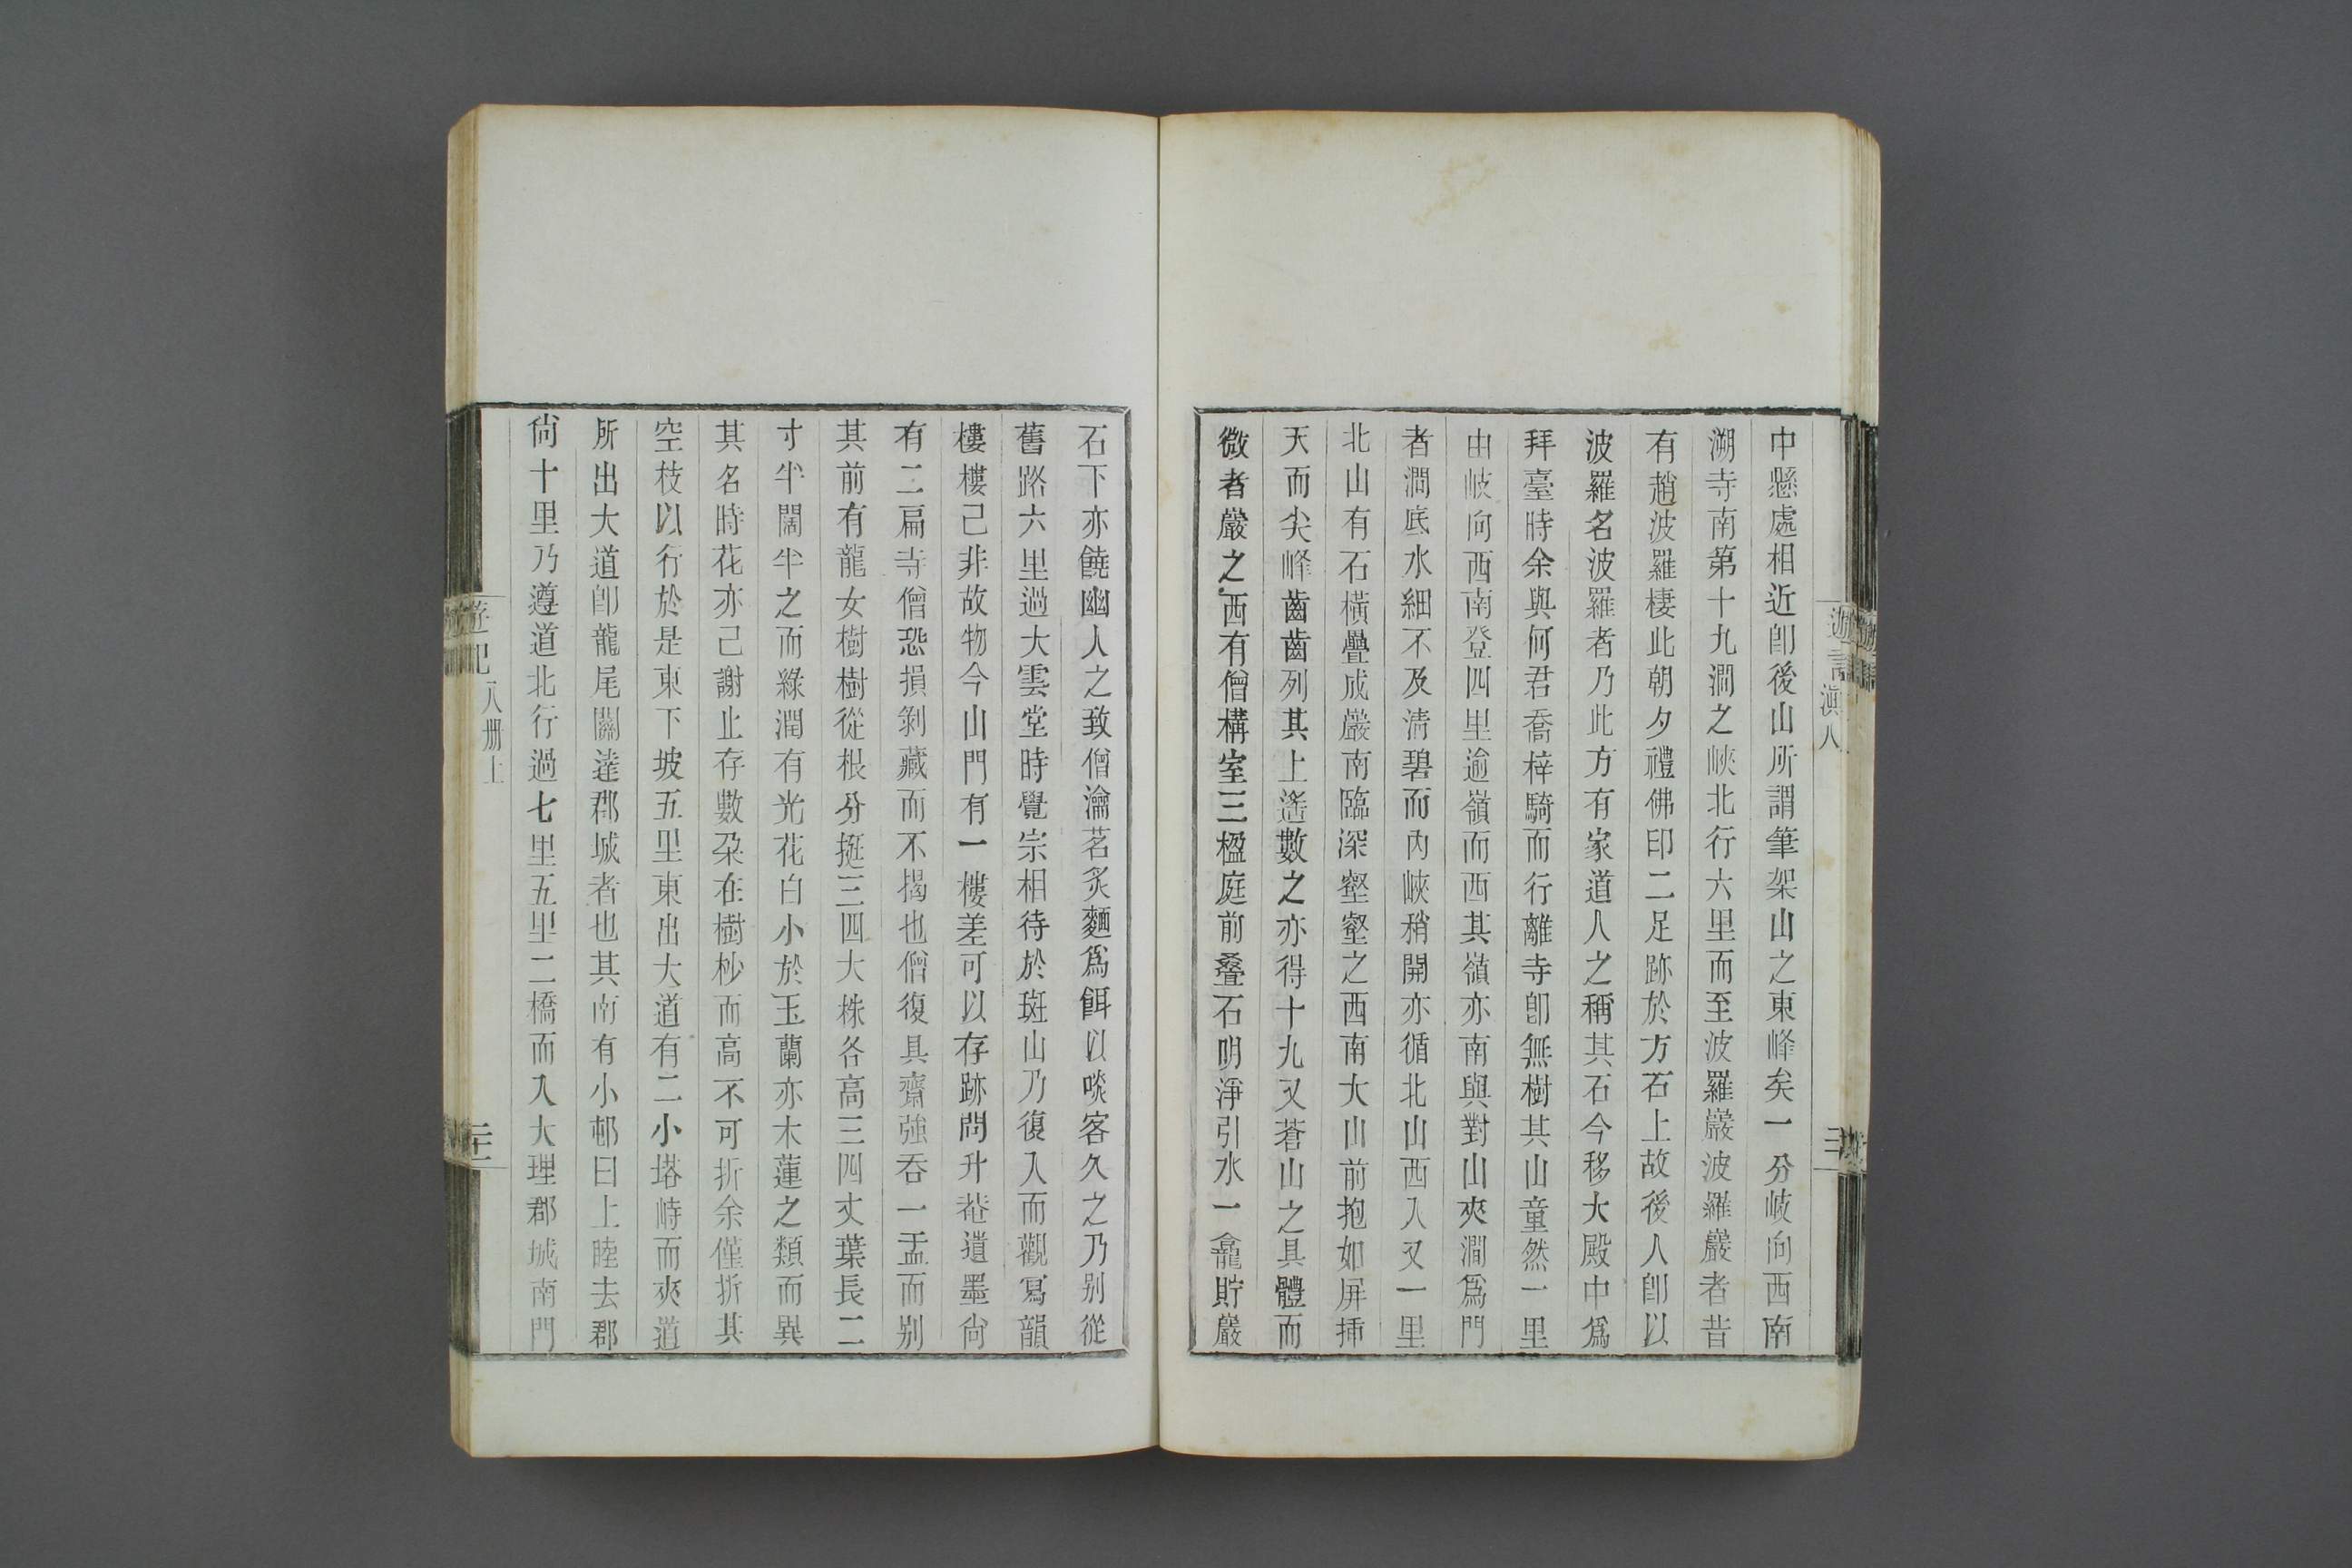 中懸處相近卽後山所謂筆架山之東峰矣一分岐向西南
溯寺南第十九澗之峽北行六里而至波羅巖波羅巖者昔
有趙波羅棲此朝夕禮佛印二足跡於方石上故後人卽以
波羅名波羅者乃此方有家道人之稱其石今移大殿中爲
拜臺時余與何君喬梓騎而行離寺卽無樹其山童然一里
由岐向西南登四里逾嶺而西其嶺亦南與對山夾澗爲門
者澗底水細不及清碧而內峽稍開亦循北山西入又一里
北山有石橫疊成巖南臨深壑壑之西南大山前抱如屏揷
天而尖峰齒齒列其上遙數之亦得十九又蒼山之具體而
微者巖之西有僧構室三楹庭前疊石明淨引水一龕貯巖
石下亦饒幽人之致僧瀹茗炙麵爲餌以啖客久之乃別從
舊路六里過大雲堂時覺宗相待於斑山乃復入而觀寫韻
樓樓己非故物今山門有一樓差可以存跡問升菴遺墨尙
有二扁寺僧恐損剝藏而不揭也僧復具齋強吞一盂而別
其前有龍女樹樹從根分挺三四大株各高三四丈葉長二
寸半闊半之而綠潤有光花白小於玉蘭亦木蓮之類而異
其名時花亦己謝止存數朶在樹杪而高不可折余僅折其
空枝以行於是東下坡五里東出大道有二小塔峙而夾道
所出大道卽龍尾關達郡城者也其南有小邨曰上睦去郡
尙十里乃遵道北行過七里五里二橋而入大理郡城南門
遊記
八册上